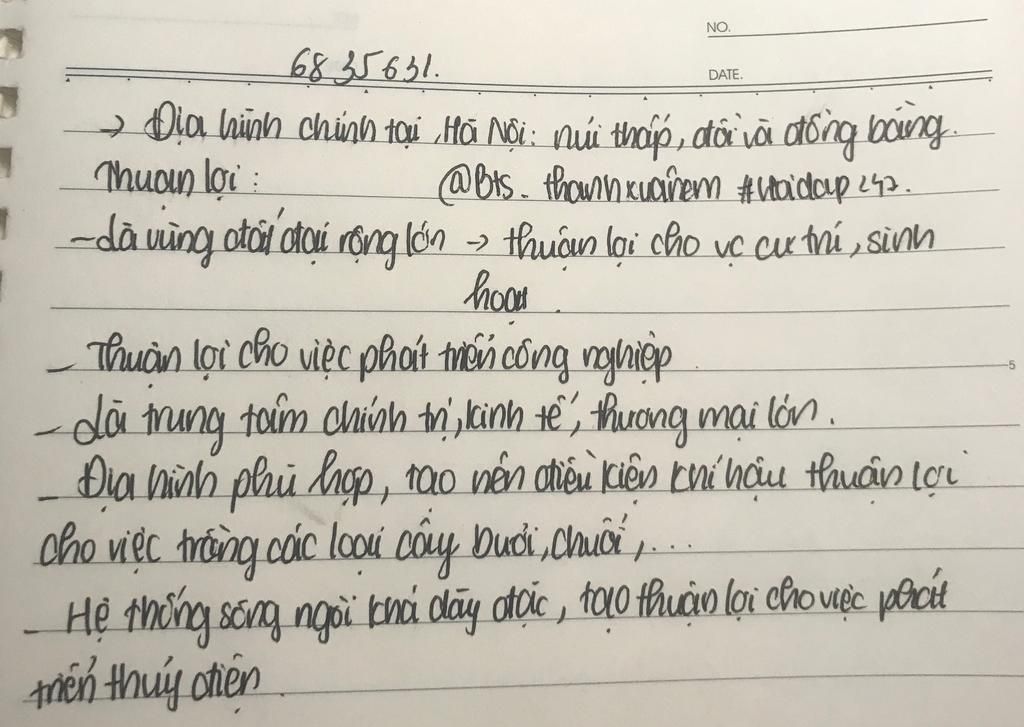 NO.
6835631.
DATE.
→ Địa hình chính tại Hà Nội: núi thấp, đồi và đồng bằng.
Thuận lợi:
@Bts_thanhxuanem #Hoidap247.
- Là vùng đất đai rộng lớn → thuận lợi cho vc cư trí, sinh
hoạt.
- Thuận lợi cho việc phát triển công nghiệp
5
- Là trung tâm chính trị, kinh tế, thương mại lớn.
- Địa hình phù hợp, tạo nên điều kiện khí hậu thuận lợi
cho việc trồng các loại cây bưởi, chuối,...
- Hệ thống sông ngòi khá dày đặc, tạo thuận lợi cho việc phát
triển thuỷ điện.